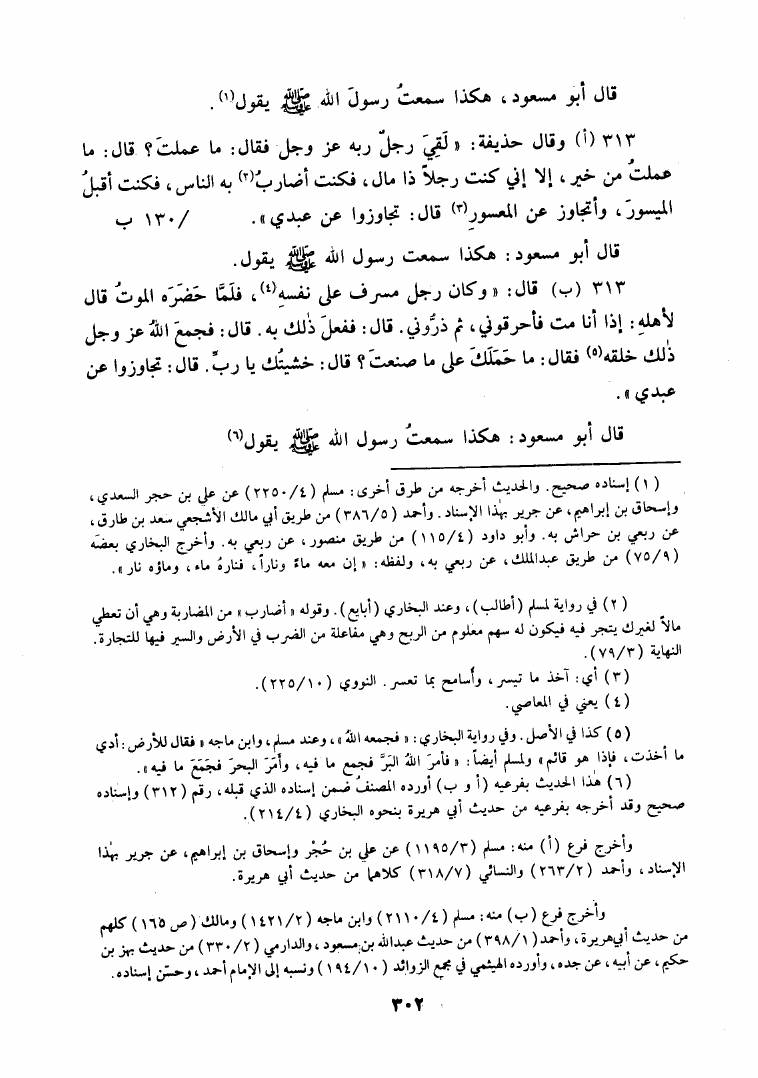 قال أبو مسعود، هكذا سمعتُ رسولَ الله ﷺ يقول(١).
٣١٣ (أ) وقال حذيفة: « لَقِيَ رجلٌ ربه عز وجل فقال: ما عملتَ؟ قال: ما
عملتُ من خير، إلا إني كنت رجلاً ذا مال، فكنت أضاربُ(٢) به الناس، فكنت أقبلُ
الميسورَ، وأتجاوز عن المعسورِ(٣) قال: تجاوزوا عن عبدي ». /١٣٠ ب
قال أبو مسعود: هكذا سمعت رسول الله ﷺ يقول.
٣١٣ (ب) قال: « وكان رجل مسرف على نفسهِ(٤)، فلَمَّا حَضَرَه الموتُ قال
لأهلهِ: إذا أنا مت فأحرقوني، ثم ذرُّوني. قال: ففعلَ ذٰلك به. قال: فجمعَ اللهُ عز وجل
ذٰلك خلقه(٥) فقال: ما حَمَلَكَ على ما صنعتَ؟ قال: خشيتُك يا ربِّ. قال: تجاوزوا عن
عبدي ».
قال أبو مسعود: هكذا سمعتُ رسول الله ﷺ يقول(٦)
(١) إسناده صحيح. والحديث أخرجه من طرق أخرى: مسلم (٢٢٥٠/٤) عن علي بن حجر السعدي،
وإسحاق بن إبراهيم، عن جرير بهٰذا الإسناد. وأحمد (٣٨٦/٥) من طريق أبي مالك الأشجعي سعد بن طارق،
عن ربعي بن حراش به. وأبو داود (١١٥/٤) من طريق منصور، عن ربعي به. وأخرج البخاري بعضَه
(٧٥/٩) من طريق عبدالملك، عن ربعي به، ولفظه: « إن معه ماءً وناراً، فنارهُ ماء، وماؤه نار ».
(٢) في رواية لمسلم (أطالب)، وعند البخاري (أبايع). وقوله « أضارب » من المضاربة وهي أن تعطي
مالاً لغيرك يتجر فيه فيكون له سهم معلوم من الربح وهي مفاعلة من الضرب في الأرض والسير فيها للتجارة.
النهاية (٧٩/٣).
(٣) أي: آخذ ما تيسر، وأسامح بما تعسر. النووي (٢٢٥/١٠).
(٤) يعني في المعاصي.
(٥) كذا في الأصل. وفي رواية البخاري: « فجمعه اللهُ »، وعند مسلم، وابن ماجه « فقال للأرض: أدي
ما أخذت، فإذا هو قائم » ولمسلم أيضاً: « فأمرَ اللهُ البَرَّ فجمع ما فيه، وأَمَرَ البحرَ فجَمَعَ ما فيه ».
(٦) هٰذا الحديث بفرعيه (أ و ب) أورده المصنفُ ضمن إسناده الذي قبله، رقم (٣١٢) وإسناده
صحيح وقد أخرجه بفرعيه من حديث أبي هريرة بنحوه البخاري (٢١٤/٤).
وأخرج فرع (أ) منه: مسلم (١١٩٥/٣) عن علي بن حُجْر وإسحاق بن إبراهيم، عن جرير بهٰذا
الإسناد، وأحمد (٢٦٣/٢) والنسائي (٣١٨/٧) كلاهما من حديث أبي هريرة.
وأخرج فرع (ب) منه: مسلم (٢١١٠/٤) وابن ماجه (١٤٢١/٢) ومالك (ص ١٦٥) كلهم
من حديث أبي هريرة، وأحمد (٣٩٨/١) من حديث عبدالله بن مسعود، والدارمي (٣٣٠/٢) من حديث بهز بن
حكيم، عن أبيه، عن جده، وأورده الهيثمي في مجمع الزوائد (١٩٤/١٠) ونسبه إلى الإمام أحمد، وحسّن إسناده.
٣٠٢